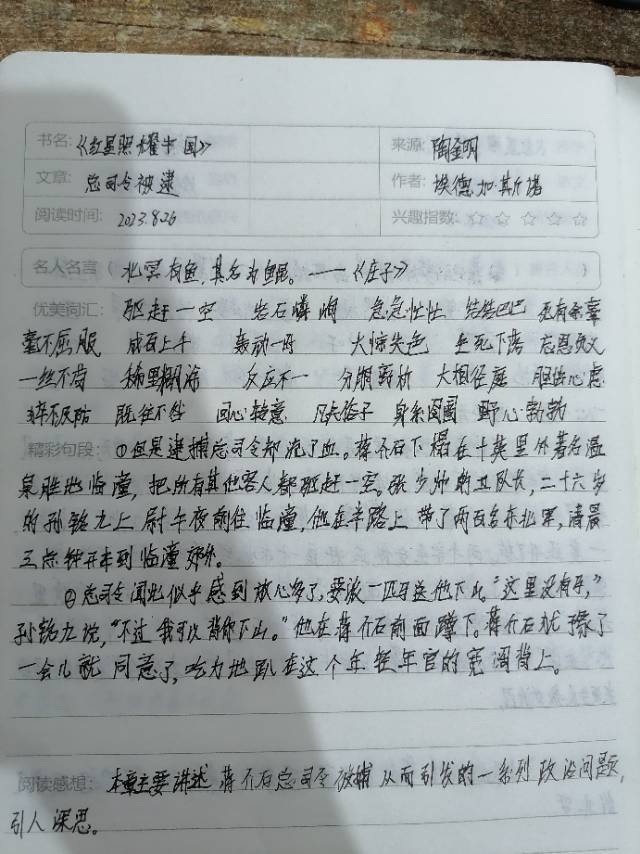 书名: 《红星照耀中国》 来源: 陶金明
文章: 总司令被逮 作者: 埃德加·斯诺
阅读时间: 2023.8.26 兴趣指数: ☆ ☆ ☆ ☆ ☆
名人名言( 北冥有鱼,其名为鲲。——《庄子》 )
优美词汇: 驱赶一空 岩石嶙峋 急急忙忙 结结巴巴 死有余辜
毫不屈服 成百上千 轰动一时 大惊失色 生死下落 忘恩负义
一丝不苟 稀里糊涂 反应不一 分崩离析 大相径庭 胆战心虚
猝不及防 既往不咎 回心转意 凡夫俗子 身系囹圄 野心勃勃
精彩句段: ①但是逮捕总司令却流了血。蒋介石下榻在十英里外著名温
泉胜地临潼,把所有其他客人都驱赶一空。张少帅的卫队长,二十六岁
的孙铭九上尉午夜前往临潼,他在半路上带了两百名东北军,清晨
三点钟开车到临潼郊外。
②总司令闻此似乎感到放心多了,要派一匹马送他下山“这里没有马,”
孙铭九说,“不过我可以背你下山。”他在蒋介石前面蹲下。蒋介石犹豫了
一会儿就同意了,吃力地趴在这个年轻军官的宽阔背上。
阅读感想: 本章主要讲述蒋介石总司令被捕从而引发的一系列政治问题,
引人深思。